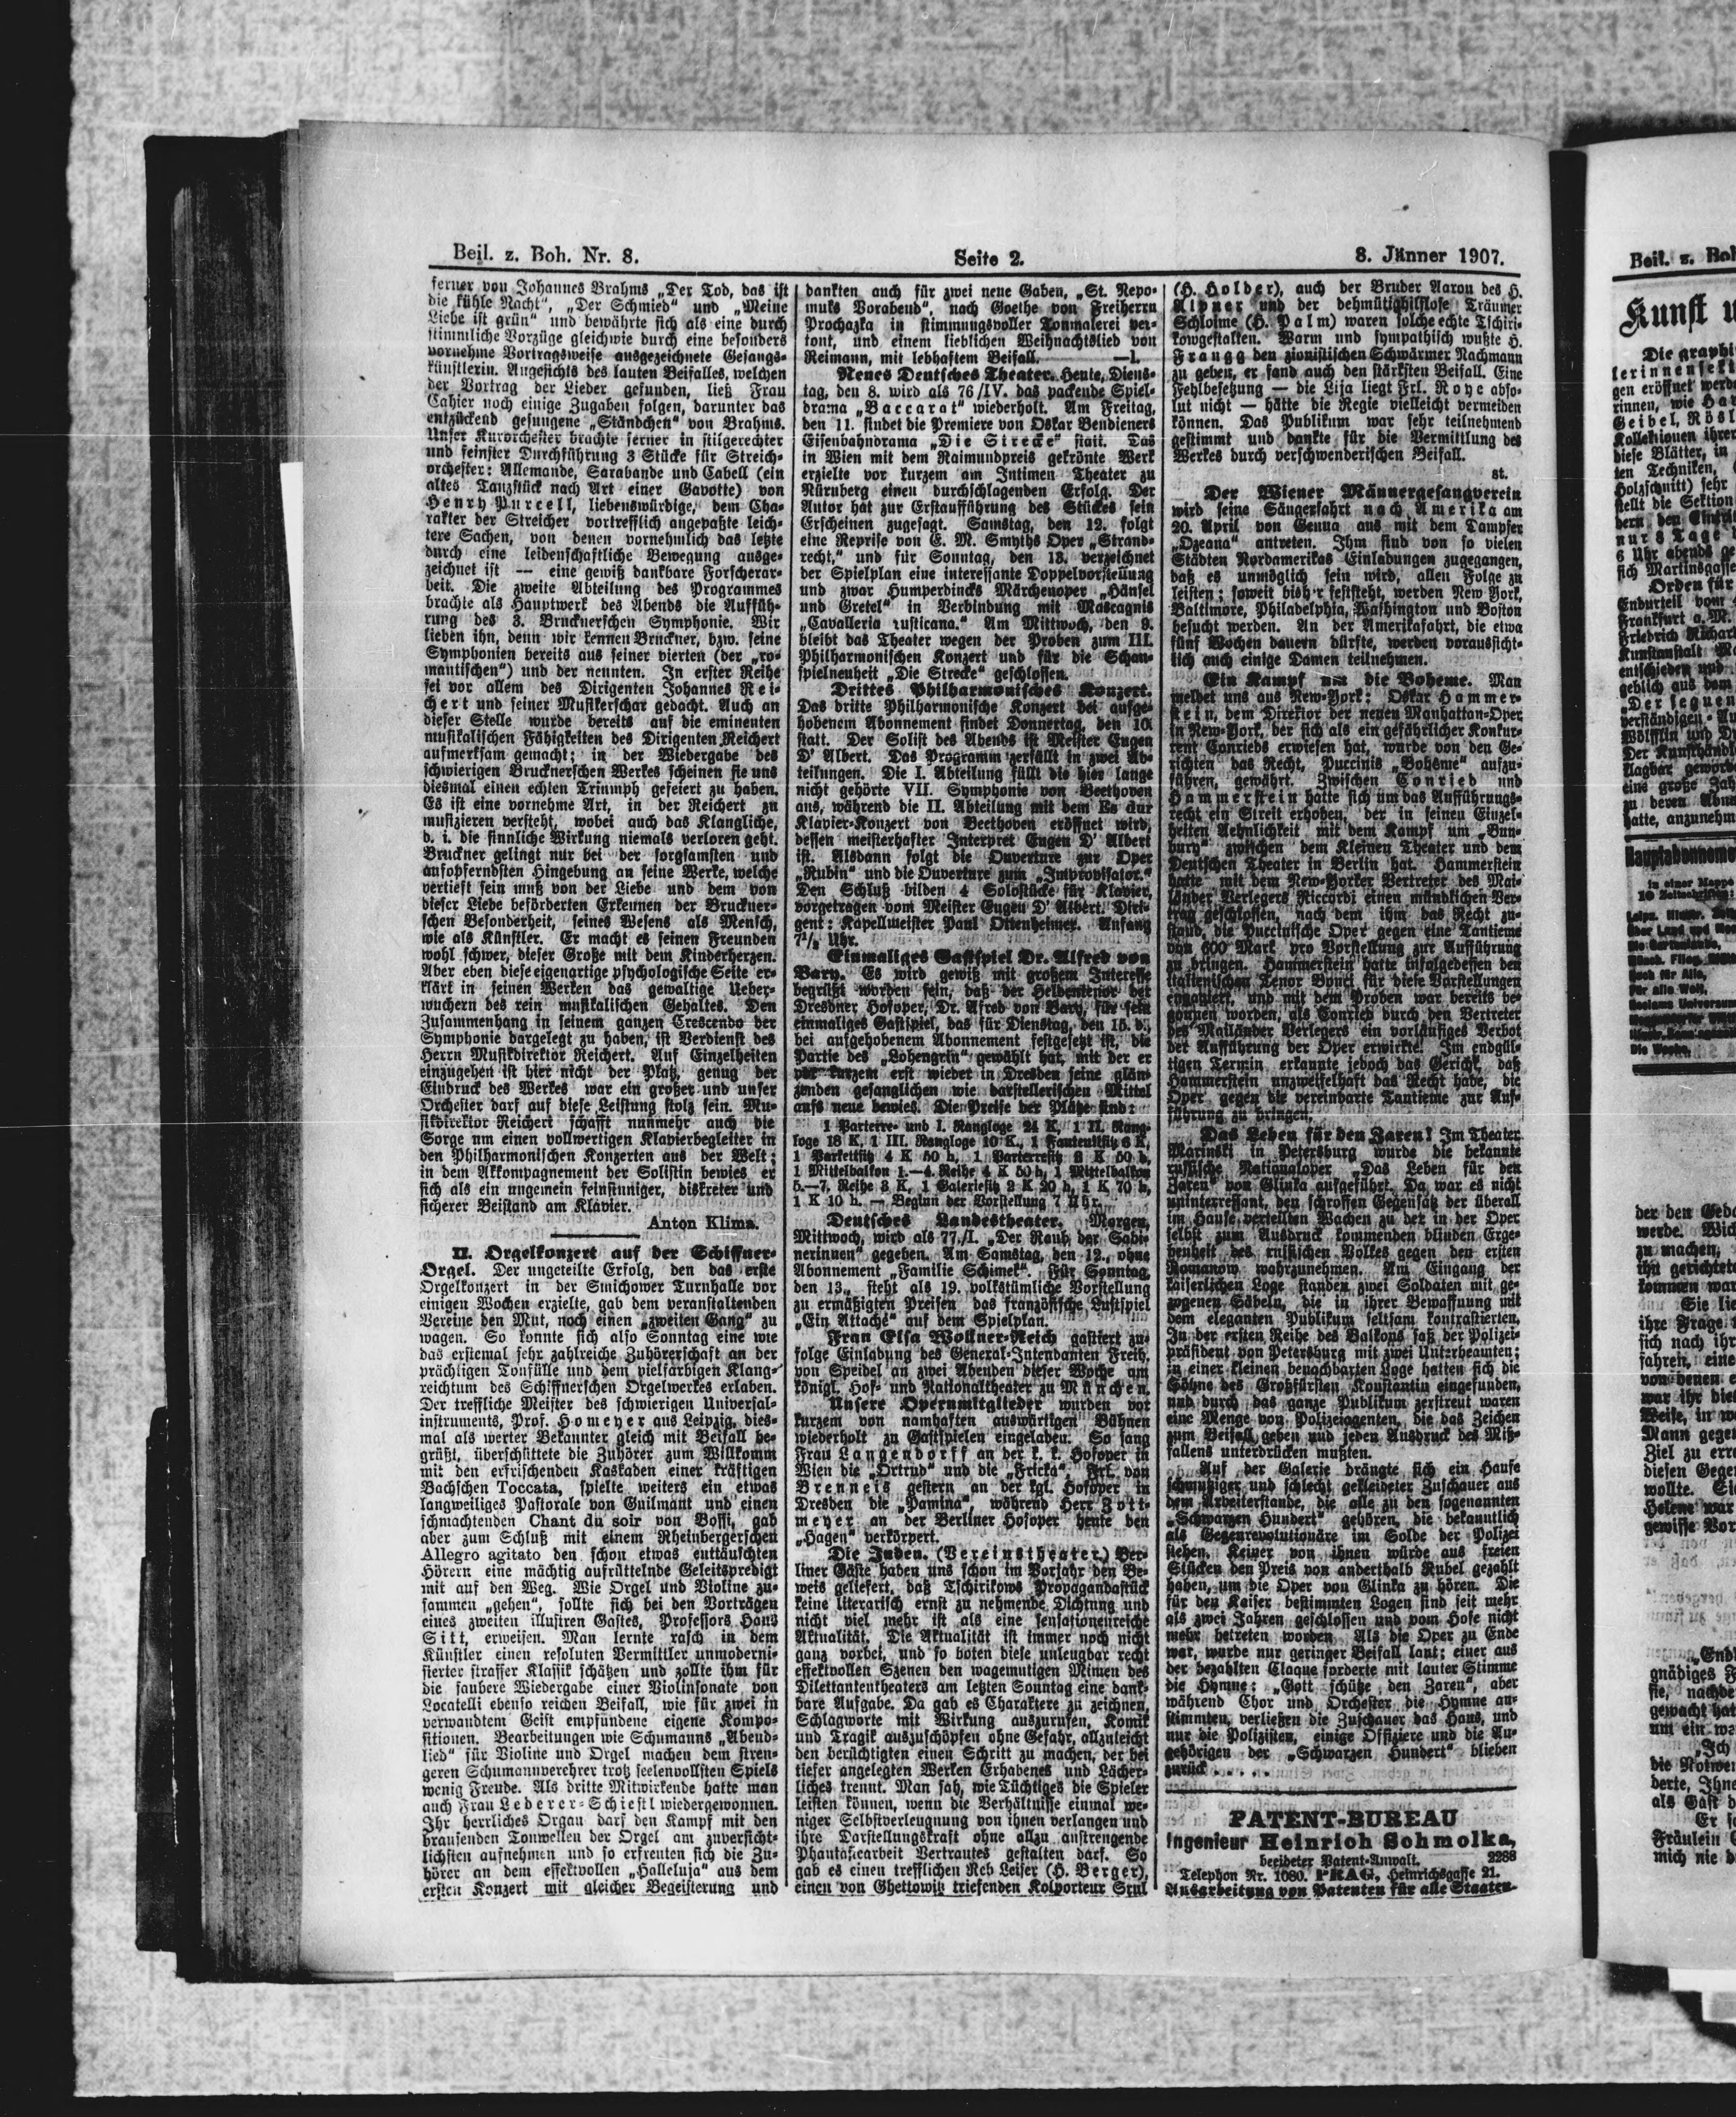 Beil. z. Boh. Nr. 8.
Seite 2.
8. Jänner 1907.
ferner von Johannes Brahms „Der Tod, das ist
die kühle Nacht“, „Der Schmied“ und „Meine
Liebe ist grün“ und bewährte sich als eine durch
stimmliche Vorzüge gleichwie durch eine besonders
vornehme Vortragsweise ausgezeichnete Gesangs-
künstlerin. Angesichts des lauten Beifalles, welchen
der Vortrag der Lieder gefunden, ließ Frau
Cahier noch einige Zugaben folgen, darunter das
entzückend gesungene „Ständchen“ von Brahms.
Unser Kurorchester brachte ferner in stilgerechter
und feinster Durchführung 3 Stücke für Streich-
orchester: Allemande, Sarabande und Cabell (ein
altes Tanzstück nach Art einer Gavotte) von
Henry Purcell, liebenswürdige, dem Cha-
rakter der Streicher vortrefflich angepaßte leich-
tere Sachen, von denen vornehmlich das letzte
durch eine leidenschaftliche Bewegung ausge-
zeichnet ist — eine gewiß dankbare Forscherar-
beit. Die zweite Abteilung des Programmes
brachte als Hauptwerk des Abends die Auffüh-
rung des 3. Brucknerschen Symphonie. Wir
lieben ihn, denn wir kennen Bruckner, bzw. seine
Symphonien bereits aus seiner vierten (der „ro-
mantischen“) und der neunten. In erster Reihe
sei vor allem des Dirigenten Johannes Rei-
chert und seiner Musikerschar gedacht. Auch an
dieser Stelle wurde bereits auf die eminenten
musikalischen Fähigkeiten des Dirigenten Reichert
aufmerksam gemacht; in der Wiedergabe des
schwierigen Brucknerschen Werkes scheinen sie uns
diesmal einen echten Triumph gefeiert zu haben.
Es ist eine vornehme Art, in der Reichert zu
musizieren versteht, wobei auch das Klangliche,
d. i. die sinnliche Wirkung niemals verloren geht.
Bruckner gelingt nur bei der sorgsamsten und
aufopferndsten Hingebung an seine Werke, welche
vertieft sein muß von der Liebe und dem von
dieser Liebe beförderten Erkennen der Bruckner-
schen Besonderheit, seines Wesens als Mensch,
wie als Künstler. Er macht es seinen Freunden
wohl schwer, dieser Große mit dem Kinderherzen.
Aber eben diese eigenartige psychologische Seite er-
klärt in seinen Werken das gewaltige Ueber-
wuchern des rein musikalischen Gehaltes. Den
Zusammenhang in seinem ganzen Crescendo der
Symphonie dargelegt zu haben, ist Verdienst des
Herrn Musikdirektor Reichert. Auf Einzelheiten
einzugehen ist hier nicht der Platz, genug der
Eindruck des Werkes war ein großer und unser
Orchester darf auf diese Leistung stolz sein. Mu-
sikdirektor Reichert schafft nunmehr auch die
Sorge um einen vollwertigen Klavierbegleiter in
den Philharmonischen Konzerten aus der Welt;
in dem Akkompagnement der Solistin bewies er
sich als ein ungemein feinsinniger, diskreter und
sicherer Beistand am Klavier.
Anton Klima.
II. Orgelkonzert auf der Schiffner-
Orgel. Der ungeteilte Erfolg, den das erste
Orgelkonzert in der Smichower Turnhalle vor
einigen Wochen erzielte, gab dem veranstaltenden
Vereine den Mut, noch einen „zweiten Gang“ zu
wagen. So konnte sich also Sonntag eine wie
das erstemal sehr zahlreiche Zuhörerschaft an der
prächtigen Tonfülle und dem vielfarbigen Klang-
reichtum des Schiffnerschen Orgelwerkes erlaben.
Der treffliche Meister des schwierigen Universal-
instruments, Prof. Homeyer aus Leipzig, dies-
mal als werter Bekannter gleich mit Beifall be-
grüßt, überschüttete die Zuhörer zum Willkomm
mit den erfrischenden Kaskaden einer kräftigen
Bachschen Toccata, spielte weiters ein etwas
langweiliges Pastorale von Guilmant und einen
schmachtenden Chant du soir von Bossi, gab
aber zum Schluß mit einem Rheinbergerschen
Allegro agitato den schon etwas enttäuschten
Hörern eine mächtig aufrüttelnde Geleitspredigt
mit auf den Weg. Wie Orgel und Violine zu-
sammen „gehen“, sollte sich bei den Vorträgen
eines zweiten illustren Gastes, Professors Hans
Sitt, erweisen. Man lernte rasch in dem
Künstler einen resoluten Vermittler unmoderni-
sierter straffer Klassik schätzen und zollte ihm für
die saubere Wiedergabe einer Violinsonate von
Locatelli ebenso reichen Beifall, wie für zwei in
verwandtem Geist empfundene eigene Kompo-
sitionen. Bearbeitungen wie Schumanns „Abend-
lied“ für Violine und Orgel machen dem stren-
geren Schumannverehrer trotz seelenvollsten Spiels
wenig Freude. Als dritte Mitwirkende hatte man
auch Frau Lederer-Schiestl wiedergewonnen.
Ihr herrliches Organ darf den Kampf mit den
brausenden Tonwellen der Orgel am zuversicht-
lichsten aufnehmen und so erfreuten sich die Zu-
hörer an dem effektvollen „Halleluja“ aus dem
ersten Konzert mit gleicher Begeisterung und
dankten auch für zwei neue Gaben, „St. Nepo-
muks Vorabend“, nach Goethe von Freiherrn
Prochazka in stimmungsvoller Tonmalerei ver-
tont, und einem lieblichen Weihnachtslied von
Reimann, mit lebhaftem Beifall. —l.
Neues Deutsches Theater. Heute, Diens-
tag, den 8. wird als 76/IV. das packende Spiel-
drama „Baccarat“ wiederholt. Am Freitag,
den 11. findet die Premiere von Oskar Bendieners
Eisenbahndrama „Die Strecke“ statt. Das
in Wien mit dem Raimundpreis gekrönte Werk
erzielte vor kurzem am Intimen Theater zu
Nürnberg einen durchschlagenden Erfolg. Der
Autor hat zur Erstaufführung des Stückes sein
Erscheinen zugesagt. Samstag, den 12. folgt
eine Reprise von E. M. Smyths Oper „Strand-
recht,“ und für Sonntag, den 13. verzeichnet
der Spielplan eine interessante Doppelvorstellung
und zwar Humperdincks Märchenoper „Hänsel
und Gretel“ in Verbindung mit Mascagnis
„Cavalleria rusticana.“ Am Mittwoch, den 9.
bleibt das Theater wegen der Proben zum III.
Philharmonischen Konzert und für die Schau-
spielneuheit „Die Strecke“ geschlossen.
Drittes Philharmonisches Konzert.
Das dritte Philharmonische Konzert bei aufge-
hobenem Abonnement findet Donnertag, den 10.
statt. Der Solist des Abends ist Meister Eugen
D' Albert. Das Programm zerfällt in zwei Ab-
teilungen. Die I. Abteilung füllt die hier lange
nicht gehörte VII. Symphonie von Beethoven
aus, während die II. Abteilung mit dem Es dur
Klavier-Konzert von Beethoven eröffnet wird,
dessen meisterhafter Interpret Eugen D' Albert
ist. Alsdann folgt die Ouverture zur Oper
„Rubin“ und die Ouverture zum „Improvisator.“
Den Schluß bilden 4 Solostücke für Klavier,
vorgetragen vom Meister Eugen D' Albert. Diri-
gent: Kapellmeister Paul Ottenheimer. Anfang
7½ Uhr.
Einmaliges Gastspiel Dr. Alfred von
Bary. Es wird gewiß mit großem Interesse
begrüßt worden sein, daß der Heldentenor der
Dresdner Hofoper, Dr. Afred von Bary, für sein
einmaliges Gastspiel, das für Dienstag, den 15. d.,
bei aufgehobenem Abonnement festgesetzt ist, die
Partie des „Lohengrin“ gewählt hat, mit der er
vor kurzem erst wieder in Dresden seine glän-
zenden gesanglichen wie darstellerischen Mittel
aufs neue bewies. Die Preise der Plätze sind:
1 Parterre- und I. Rangloge 24 K, 1 II. Rang-
loge 18 K, 1 III. Rangloge 10 K., 1 Fauteuilsitz 6 K,
1 Parkettsitz 4 K 50 h, 1 Parterresitz 3 K 50 h,
1 Mittelbalkon 1.—4. Reihe 4 K 50 h, 1 Mittelbalkon
5.—7. Reihe 3 K, 1 Galeriesitz 2 K 20 h, 1 K 70 h,
1 K 10 h. — Beginn der Vorstellung 7 Uhr.
Deutsches Landestheater. Morgen,
Mittwoch, wird als 77./I. „Der Raub der Sabi-
nerinnen“ gegeben. Am Samstag, den 12., ohne
Abonnement „Familie Schimek“. Für Sonntag,
den 13., steht als 19. volkstümliche Vorstellung
zu ermäßigten Preisen das französische Lustspiel
„Ein Attaché“ auf dem Spielplan.
Frau Elsa Wollner-Reich gastiert zu-
folge Einladung des General-Intendanten Freih.
von Speidel an zwei Abenden dieser Woche am
königl. Hof- und Nationaltheater zu München.
Unsere Opernmitglieder wurden vor
kurzem von namhaften auswärtigen Bühnen
wiederholt zu Gastspielen eingeladen. So sang
Frau Langendorff an der k. k. Hofoper in
Wien die „Ortrud“ und die „Fricka“, Frl. von
Brenneis gestern an der kgl. Hofoper in
Dresden die „Pamina“, während Herr Zott-
meyer an der Berliner Hofoper heute den
„Hagen“ verkörpert.
Die Juden. (Vereinstheater.) Ber-
liner Gäste haben uns schon im Vorjahr den Be-
weis geliefert, daß Tschirikows Propagandastück
keine literarisch ernst zu nehmende Dichtung und
nicht viel mehr ist als eine sensationenreiche
Aktualität. Die Aktualität ist immer noch nicht
ganz vorbei, und so boten diese unleugbar recht
effektvollen Szenen den wagemutigen Mimen des
Dilettantentheaters am letzten Sonntag eine dank-
bare Aufgabe. Da gab es Charaktere zu zeichnen,
Schlagworte mit Wirkung auszurufen, Komik
und Tragik auszuschöpfen ohne Gefahr, allzuleicht
den berüchtigten einen Schritt zu machen, der bei
tiefer angelegten Werken Erhabenes und Lächer-
liches trennt. Man sah, wie Tüchtiges die Spieler
leisten können, wenn die Verhältnisse einmal we-
niger Selbstverleugnung von ihnen verlangen und
ihre Darstellungskraft ohne allzu anstrengende
Phantasiearbeit Vertrautes gestalten darf. So
gab es einen trefflichen Reb Leiser (H. Berger),
einen von Ghettowitz triefenden Kolporteur Srul
(H. Holder), auch der Bruder Aaron des H.
Alpner und der dehmütighilflose Träumer
Schloime (H. Palm) waren solche echte Tschiri-
kowgestalten. Warm und sympathisch wußte H.
Frangg den zionistischen Schwärmer Nachmann
zu geben, er fand auch den stärksten Beifall. Eine
Fehlbesetzung — die Lija liegt Frl. Roye abso-
lut nicht — hätte die Regie vielleicht vermeiden
können. Das Publikum war sehr teilnehmend
gestimmt und dankte für die Vermittlung des
Werkes durch verschwenderischen Beifall.
st.
Der Wiener Männergesangverein
wird seine Sängerfahrt nach Amerika am
20. April von Genua aus mit dem Dampfer
„Ozeana“ antreten. Ihm sind von so vielen
Städten Nordamerikas Einladungen zugegangen,
daß es unmöglich sein wird, allen Folge zu
leisten; soweit bish'r feststeht, werden New York,
Baltimore, Philadelphia, Washington und Boston
besucht werden. An der Amerikafahrt, die etwa
fünf Wochen dauern dürfte, werden voraussicht-
lich auch einige Damen teilnehmen.
Ein Kampf um die Boheme. Man
meldet uns aus New-York: Oskar Hammer-
stein, dem Direktor der neuen Manhattan-Oper
in New-York, der sich als ein gefährlicher Konkur-
rent Conrieds erwiesen hat, wurde von den Ge-
richten das Recht, Puccinis „Bohème“ aufzu-
führen, gewährt. Zwischen Conried und
Hammerstein hatte sich um das Aufführungs-
recht ein Streit erhoben, der in seinen Einzel-
heiten Aehnlichkeit mit dem Kampf um „Bun-
bury“ zwischen dem Kleinen Theater und dem
Deutschen Theater in Berlin hat. Hammerstein
hatte mit dem New-Yorker Vertreter des Mai-
länder Verlegers Riccordi einen mündlichen Ver-
trag geschlossen, nach dem ihm das Recht zu-
stand, die Puccinische Oper gegen eine Tantieme
von 600 Mark pro Vorstellung zur Aufführung
zu bringen. Hammerstein hatte infolgedessen den
italienischen Tenor Bonci für diese Vorstellungen
engagiert, und mit dem Proben war bereits be-
gonnen worden, als Conried durch den Vertreter
des Mailänder Verlegers ein vorläufiges Verbot
der Aufführung der Oper erwirkte. Im endgül-
tigen Termin erkannte jedoch das Gericht, daß
Hammerstein unzweifelhaft das Recht habe, die
Oper gegen die vereinbarte Tantieme zur Auf-
führung zu bringen.
Das Leben für den Zaren! Im Theater
Marinski in Petersburg wurde die bekannte
russische Nationaloper „Das Leben für den
Zaren“ von Glinka aufgeführt. Da war es nicht
uninteressant, den schroffen Gegensatz der überall
im Hause verteilten Wachen zu der in der Oper
selbst zum Ausdruck kommenden blinden Erge-
benheit des russischen Volkes gegen den ersten
Romanow wahrzunehmen. Am Eingang der
kaiserlichen Loge standen zwei Soldaten mit ge-
zogenen Säbeln, die in ihrer Bewaffnung mit
dem eleganten Publikum seltsam kontrastierten.
In der ersten Reihe des Balkons saß der Polizei-
präsident von Petersburg mit zwei Unterbeamten;
in einer kleinen benachbarten Loge hatten sich die
Söhne des Großfürsten Konstantin eingefunden,
und durch das ganze Publikum zerstreut waren
eine Menge von Polizeiagenten, die das Zeichen
zum Beifall geben und jeden Ausdruck des Miß-
fallens unterdrücken mußten.
Auf der Galerie drängte sich ein Haufe
schmutziger und schlecht gekleideter Zuschauer aus
dem Arbeiterstande, die alle zu den sogenannten
„Schwarzen Hundert“ gehören, die bekanntlich
als Gegenrevolutionäre im Solde der Polizei
stehen. Keiner von ihnen würde aus freien
Stücken den Preis von anderthalb Rubel gezahlt
haben, um die Oper von Glinka zu hören. Die
für den Kaiser bestimmten Logen sind seit mehr
als zwei Jahren geschlossen und vom Hofe nicht
mehr betreten worden. Als die Oper zu Ende
war, wurde nur geringer Beifall laut; einer aus
der bezahlten Claque forderte mit lauter Stimme
die Hymne: „Gott schütze den Zaren“, aber
während Chor und Orchester die Hymne an-
stimmten, verließen die Zuschauer das Haus, und
nur die Polizisten, einige Offiziere und die An-
gehörigen der „Schwarzen Hundert“ blieben
zurück . . . . .
PATENT-BUREAU
Ingenieur Heinrich Schmolka,
beeideter Patent-Anwalt. 2288
Telephon Nr. 1080. PRAG, Heinrichsgasse 21.
Ausarbeitung von Patenten für alle Staaten.
Beil. z. Boh
Kunst u
Die graphi
lerinnensekt
gen eröffnet werd
rinnen, wie Har
Geibel, Rösl
Kollektionen ihrer
diese Blätter, in
ten Techniken,
Holzschnitt) sehr
stellt die Sektion
dern den Eintrit
nur 8 Tage
6 Uhr abends ge
sich Martinsgasse
Orden für
Endurteil vom
Frankfurt a. M.
Friedrich Richar
Kunstanstalt Ma
entschieden und
geblich aus dem
„Der sequen
verständigen-Au
Wölfflin und D
Der Kunsthändl
klagbar geword
eine große Zah
zu deren Abna
hatte, anzunehm
Hauptabonneme
in einer Mappe
10 Zeitschriften:
Für alle Welt,
Reclams Universum
Die Woche.
der den Geda
werde. Wich
zu machen,
ihn gerichtete
kommen war
Sie lie
ihre Frage
sich nach ihr
fahren, eine
von denen e
war ihr die
Weise, in we
Mann gegen
Ziel zu erre
diesen Gegen
wollte. Si
Helene war
gewisse Vor
„End
gnädiges F
sie, nachde
gewacht hat
um ein wa
„Ich
die Notwen
derte, Ihne
als Gast d
Er s
Fräulein
mich nie b